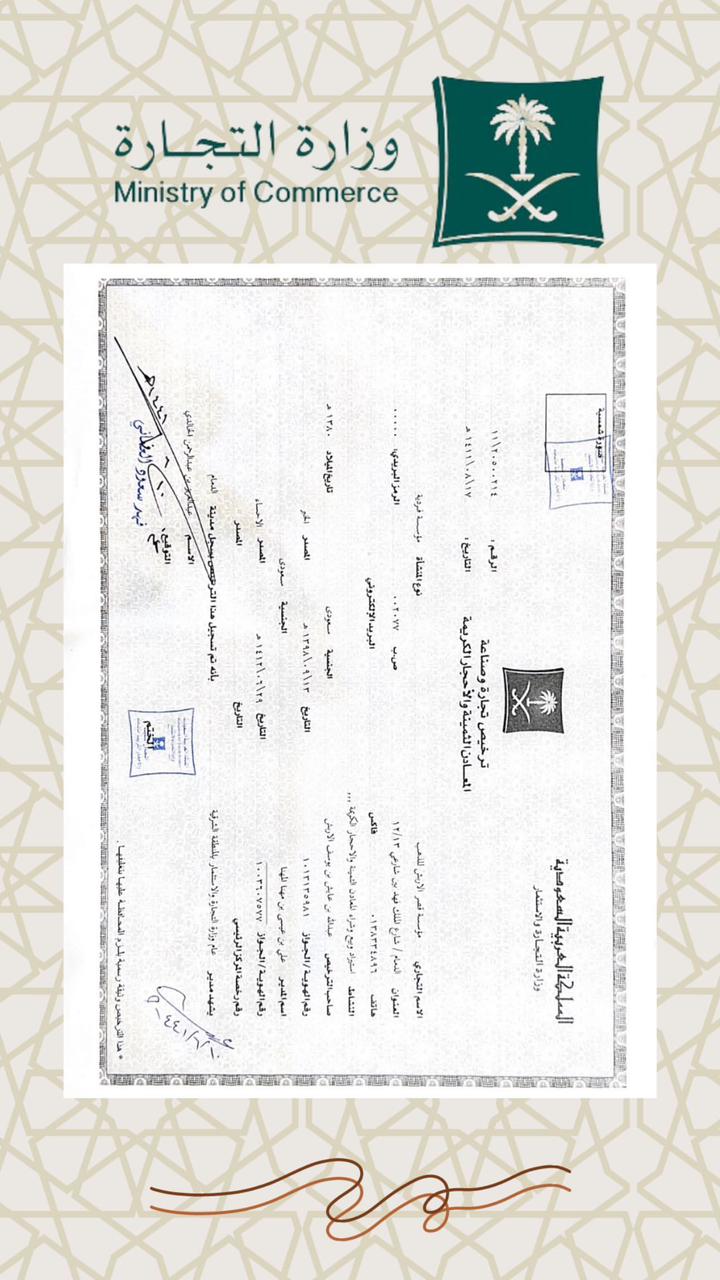 وزارة التجارة
Ministry of Commerce
المملكة العربية السعودية
وزارة التجارة والاستثمار
ترخيص تجارة وصناعة
المعادن الثمينة والأحجار الكريمة
صورة شمسية
الرقم :
التاريخ : ١٤١١/٠٨/١٧ هـ
الاسم التجاري مؤسسة قصر الاربش للذهب نوع المنشأة مؤسسة فردية
العنوان الدمام / شارع الملك فهد بن شارعي ١٢/١٣ ص.ب ٠٠٢٠٧٧ الرمز البريدي: ٠٠٠٠٠
هاتف ٠١٣٨٣٣٤٨٩٦ فاكس البريد الإلكتروني
النشاط استيراد وبيع وشراء المعادن الثمينة والاحجار الكريمة ،،،
صاحب الترخيص عبدالله بن عايش بن يوسف الاربش الجنسية سعودى تاريخ الميلاد ١٣٨٠ هـ
رقم الهوية / الجواز ١٠١٣١٣٥٩٨١ التاريخ ١٣٩٨/٠٩/١٣ هـ المصدر الخبر
اسم المدير علي بن عيسى بن مهنا المهنا الجنسية سعودى
رقم الهوية / الجواز ١٠٠٣٦٠٧٥٧٧ التاريخ ١٤١٢/٠٦/٢٩ هـ المصدر الاحساء
رقم رخصة المركز الرئيسي التاريخ المصدر
يشهد مدير عام وزارة التجارة والاستثمار بالمنطقة الشرقية بأنه تم تسجيل هذا الترخيص بسجل مدينة الدمام
الاسم عبدالعزيز بن عبدالرحمن الخالدي
التوقيع :
الختم
* هذا الترخيص وثيقة رسمية يلزم المحافظة عليها بتعليقها .